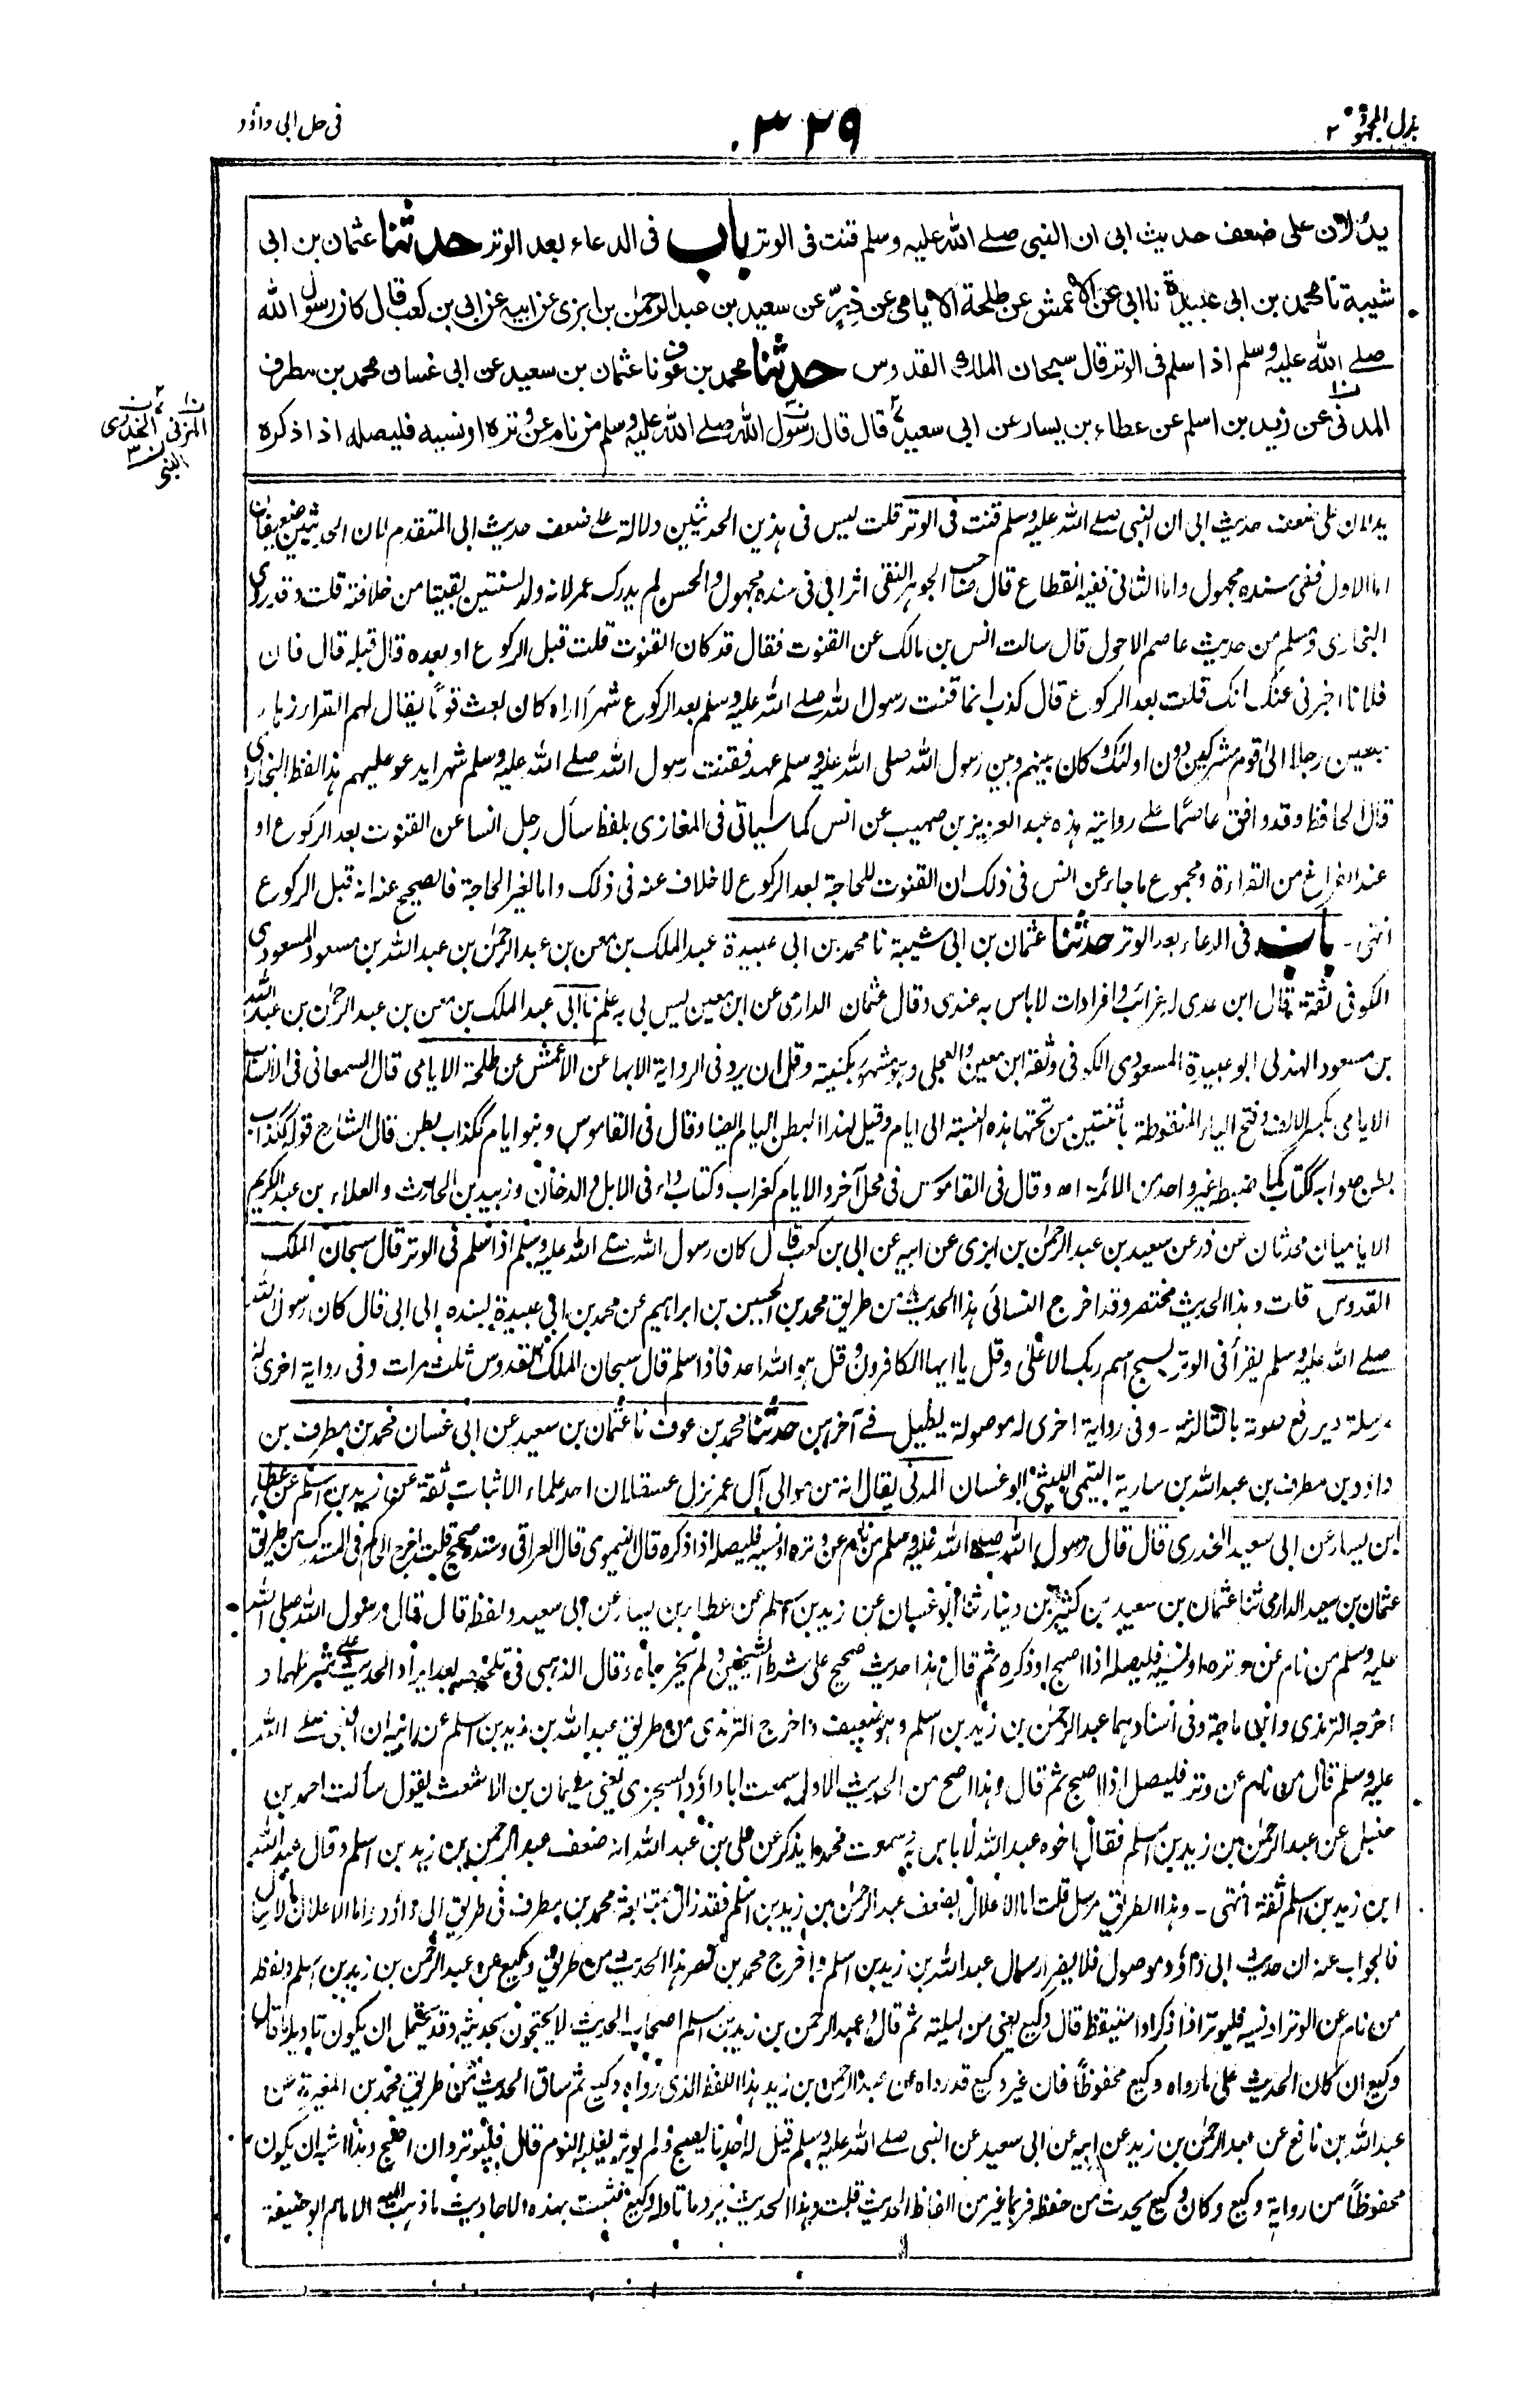 بذل المجهود ٢
٣٢٩
فى حل ابى داؤد
يدلان على ضعف حديث ابى ان النبى صلے الله عليه وسلم قنت فى الوتر باب فى الدعاء بعد الوتر حدثنا عثمان بن ابى
شيبة نا محمد بن ابى عبيدة نا ابى عن الاعمش عن طلحة الايامى عن ذرٍّ عن سعيد بن عبد الرحمٰن بن ابزى عن ابيه عن ابى بن كعب قال كان رسول الله
صلے الله عليه وسلم اذا سلم فى الوتر قال سبحان الملك القدوس حدثنا محمد بن عوف نا عثمان بن سعيد عن ابى غسان محمد بن مطرف
المدنى عن زيد بن اسلم عن عطاء بن يسار عن ابى سعيد قال قال رسول الله صلے الله عليه وسلم من نام عن وتره او نسيه فليصله اذا ذكره
ن١ المزنى ن٢ الخدرى
ن٣ النبى
يدلان على ضعف حديث ابى ان النبى صلے الله عليه وسلم قنت فى الوتر قلت ليس فى هذين الحديثين دلالة علے ضعف حديث ابى المتقدم لان الحديثين ضعيفان
اما الاول ففى سنده مجهول واما الثانى ففيه انقطاع قال صاحب الجوهر النقى اثر ابى فى سنده مجهول والحسن لم يدرك عمر لانه ولد لسنتين بقيتا من خلافته قلت وقد روى
البخارى ومسلم من حديث عاصم الاحول قال سالت انس بن مالك عن القنوت فقال قد كان القنوت قلت قبل الركوع او بعده قال قبله قال فان
فلانا اخبرنى عنك انك قلت بعد الركوع قال كذب انما قنت رسول الله صلے الله عليه وسلم بعد الركوع شهراً اراه كان بعث قوماً يقال لهم القراء زهاء
سبعين رجلا الى قوم مشركين دون اولئك وكان بينهم وبين رسول الله صلى الله عليه وسلم عهد فقنت رسول الله صلے الله عليه وسلم شهرا يدعو عليهم هذا لفظ البخارى
قال الحافظ وقد وافق عاصماً علے روايته هذه عبد العزيز بن صهيب عن انس كما سياتى فى المغازى بلفظ سأل رجل انسا عن القنوت بعد الركوع او
عند الفراغ من القراءة ومجموع ما جاء عن انس فى ذلك ان القنوت للحاجة بعد الركوع لا خلاف عنه فى ذلك واما لغير الحاجة فالصحيح عنه انه قبل الركوع
انتهى ۔ باب فى الدعاء بعد الوتر حدثنا عثمان بن ابى شيبة نا محمد بن ابى عبيدة عبد الملك بن معن بن عبد الرحمٰن بن عبد الله بن مسعود المسعودى
الكوفى ثقة قال ابن عدى له غرائب وافرادات لا باس به عندى وقال عثمان الدارمى عن ابن معين ليس لى به علم نا ابى عبد الملك بن معن بن عبد الرحمٰن بن عبد الله
بن مسعود الهذلى ابو عبيدة المسعودى الكوفى وثقه ابن معين والعجلى وهو مشهور بكنيته وقل ان يرد فى الرواية الا بها عن الاعمش عن طلحة الايامى قال السمعانى فى الانساب
الايامى بكسر الالف وفتح الياء المنقوطة باثنتين من تحتها هذه النسبة الى ايام وقيل لهذا البطن اليام ايضا وقال فى القاموس وبنو ايام ككذاب بطن قال الشارح قوله ككذاب
بطن صوابه ككتاب كما ضبطه غير واحد من الائمة اه وقال فى القاموس فى محل آخر والايام كغراب وكتاب داء فى الابل والدخان وزبيد بن الحارث والعلاء بن عبد الكريم
الاياميان محدثان عن ذر عن سعيد بن عبد الرحمٰن بن ابزى عن ابيه عن ابى بن كعب قال كان رسول الله صلے الله عليه وسلم اذا سلم فى الوتر قال سبحان الملك
القدوس قلت وهذا الحديث مختصر وقد اخرج النسائى هذا الحديث من طريق محمد بن الحسين بن ابراهيم عن محمد بن ابى عبيدة بسنده الى ابى قال كان رسول الله
صلے الله عليه وسلم يقرأ فى الوتر بسبح اسم ربك الاعلى وقل يا ايها الكافرون وقل هو الله احد فاذا سلم قال سبحان الملك القدوس ثلث مرات وفى رواية اخرى له
مرسلة ويرفع صوته بالثالثة ۔ وفى رواية اخرى له موصولة يطيل فے آخرهن حدثنا محمد بن عوف نا عثمان بن سعيد عن ابى غسان محمد بن مطرف بن
داود بن مطرف بن عبد الله بن سارية التيمى الليثى ابو غسان المدنى يقال انه من موالى آل عمر نزل عسقلان احد علماء الاثبات ثقة عن زيد بن اسلم عن عطاء
ابن يسار عن ابى سعيد الخدرى قال قال رسول الله صلے الله عليه وسلم من نام عن وتره او نسيه فليصله اذا ذكره قال النيموى قال العراقى وسنده صحيح قلت اخرج الحاكم فى المستدرك من طريق
عثمان بن سعيد الدارمى ثنا عثمان بن سعيد بن كثير بن دينار ثنا ابو غسان عن زيد بن اسلم عن عطاء بن يسار عن ابى سعيد ولفظه قال قال رسول الله صلى الله
عليه وسلم من نام عن وتره او نسيه فليصله اذا اصبح او ذكره ثم قال هذا حديث صحيح على شرط الشيخين ولم يخرجاه وقال الذهبى فى تلخيصه بعد ايراد الحديث على شرطهما و
اخرجه الترمذى وابن ماجة وفى اسنادهما عبد الرحمٰن بن زيد بن اسلم وهو ضعيف واخرج الترمذى من طريق عبد الله بن زيد بن اسلم عن ابيه ان النبى صلے الله
عليه وسلم قال من نام عن وتر فليصل اذا اصبح ثم قال وهذا اصح من الحديث الاول سمعت ابا داؤد السجزى يعنى سليمان بن الاشعث يقول سألت احمد بن
حنبل عن عبد الرحمٰن بن زيد بن اسلم فقال اخوه عبد الله لا باس به وسمعت محمدا يذكر عن على بن عبد الله انه ضعف عبد الرحمن بن زيد بن اسلم وقال عبد الله
ابن زيد بن اسلم ثقة انتهى ۔ وهذا الطريق مرسل قلت اما الاعلال بضعف عبد الرحمٰن بن زيد بن اسلم فقد زال بمتابعة محمد بن مطرف فى طريق ابى داؤد واما الاعلال بالارسال
فالجواب عنه ان حديث ابى داؤد موصول فلا يضر ارسال عبد الله بن زيد بن اسلم واخرج محمد بن نصر هذا الحديث من طريق وكيع عن عبد الرحمن بن زيد بن اسلم ولفظه
من نام عن الوتر او نسيه فليوتر اذا ذكر او استيقظ قال وكيع يعنى من ليلته ثم قال وعبد الرحمن بن زيد بن اسلم اصحاب الحديث لا يحتجون بحديثه وقد يحتمل ان يكون تاويله ما قال
وكيع ان كان الحديث على ما رواه وكيع محفوظاً فان غير وكيع قد رواه عن عبد الرحمن بن زيد بهذا اللفظ الذى رواه وكيع ثم ساق الحديث من طريق محمد بن المغيرة عن
عبد الله بن نافع عن عبد الرحمٰن بن زيد عن ابيه عن ابى سعيد عن النبى صلے الله عليه وسلم قيل له احدنا يصبح ولم يوتر يغلبه النوم قال فليوتر وان اصبح وهذا اشبه ان يكون
محفوظاً من رواية وكيع وكان وكيع يحدث من حفظه فربما غير من الفاظ الحديث قلت وهذا الحديث يرد ما تاوله وكيع فثبت بهذه الاحاديث ما ذهب اليه الامام ابو حنيفة